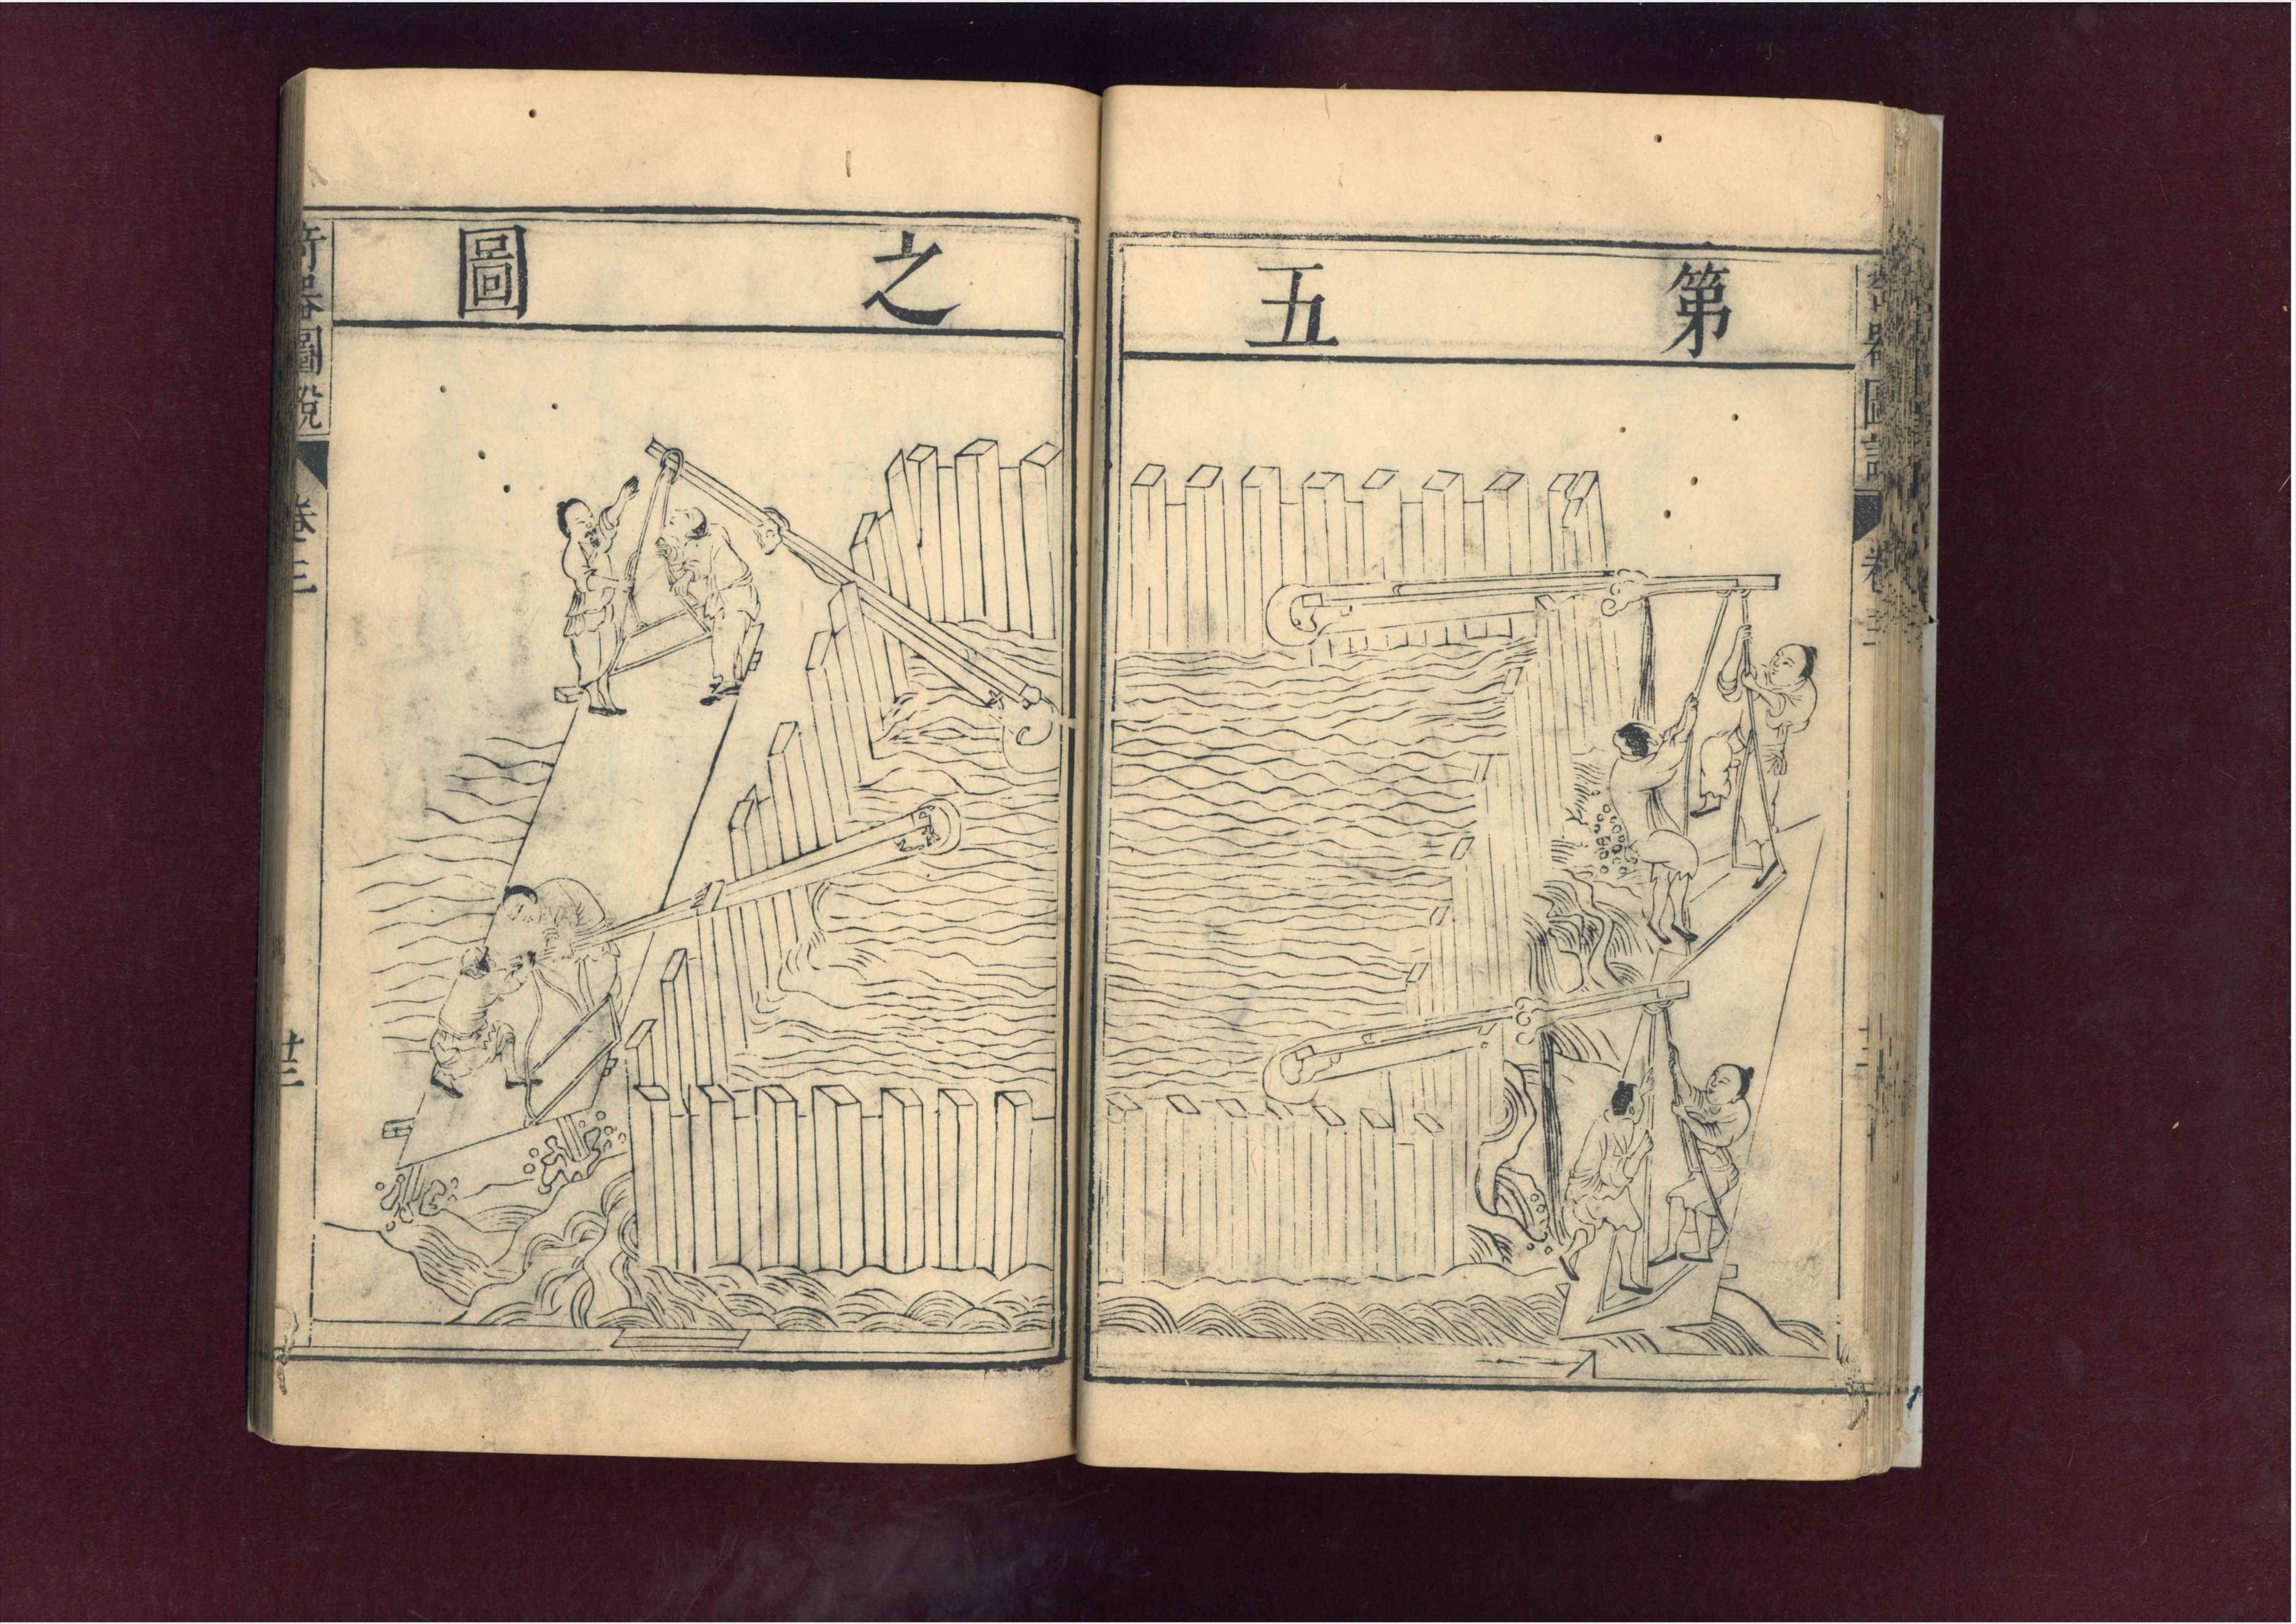 第五
之圖
奇器圖說
卷三
廿三
奇器圖說
卷三